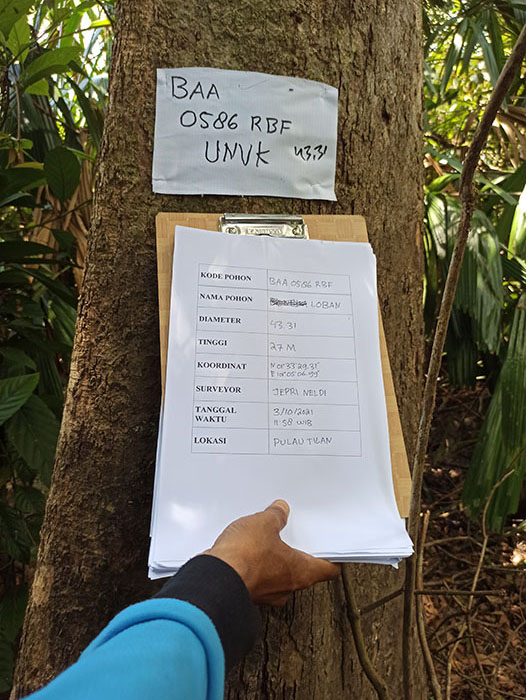 BAA
0586 RBF
UNVK 43,31
KODE POHON BAA 0586 RBF
NAMA POHON LOBAN
DIAMETER 43.31
TINGGI 27 M
KOORDINAT N 01°33'29.31"
SURVEYOR JEPRI NELDI
TANGGAL 3/10/2021
WAKTU 11:58 WIB
LOKASI PULAU TILAN